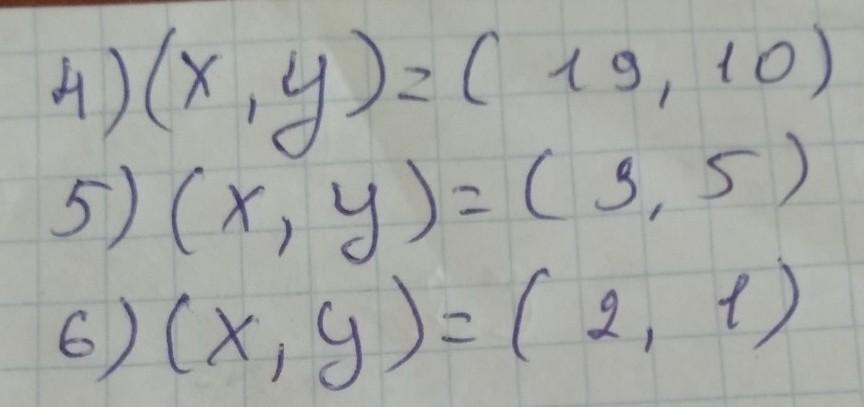 4) (x, y) = ( 19, 10)
5) (x, y) = ( 9, 5)
6) (x, y) = ( 2, 1)